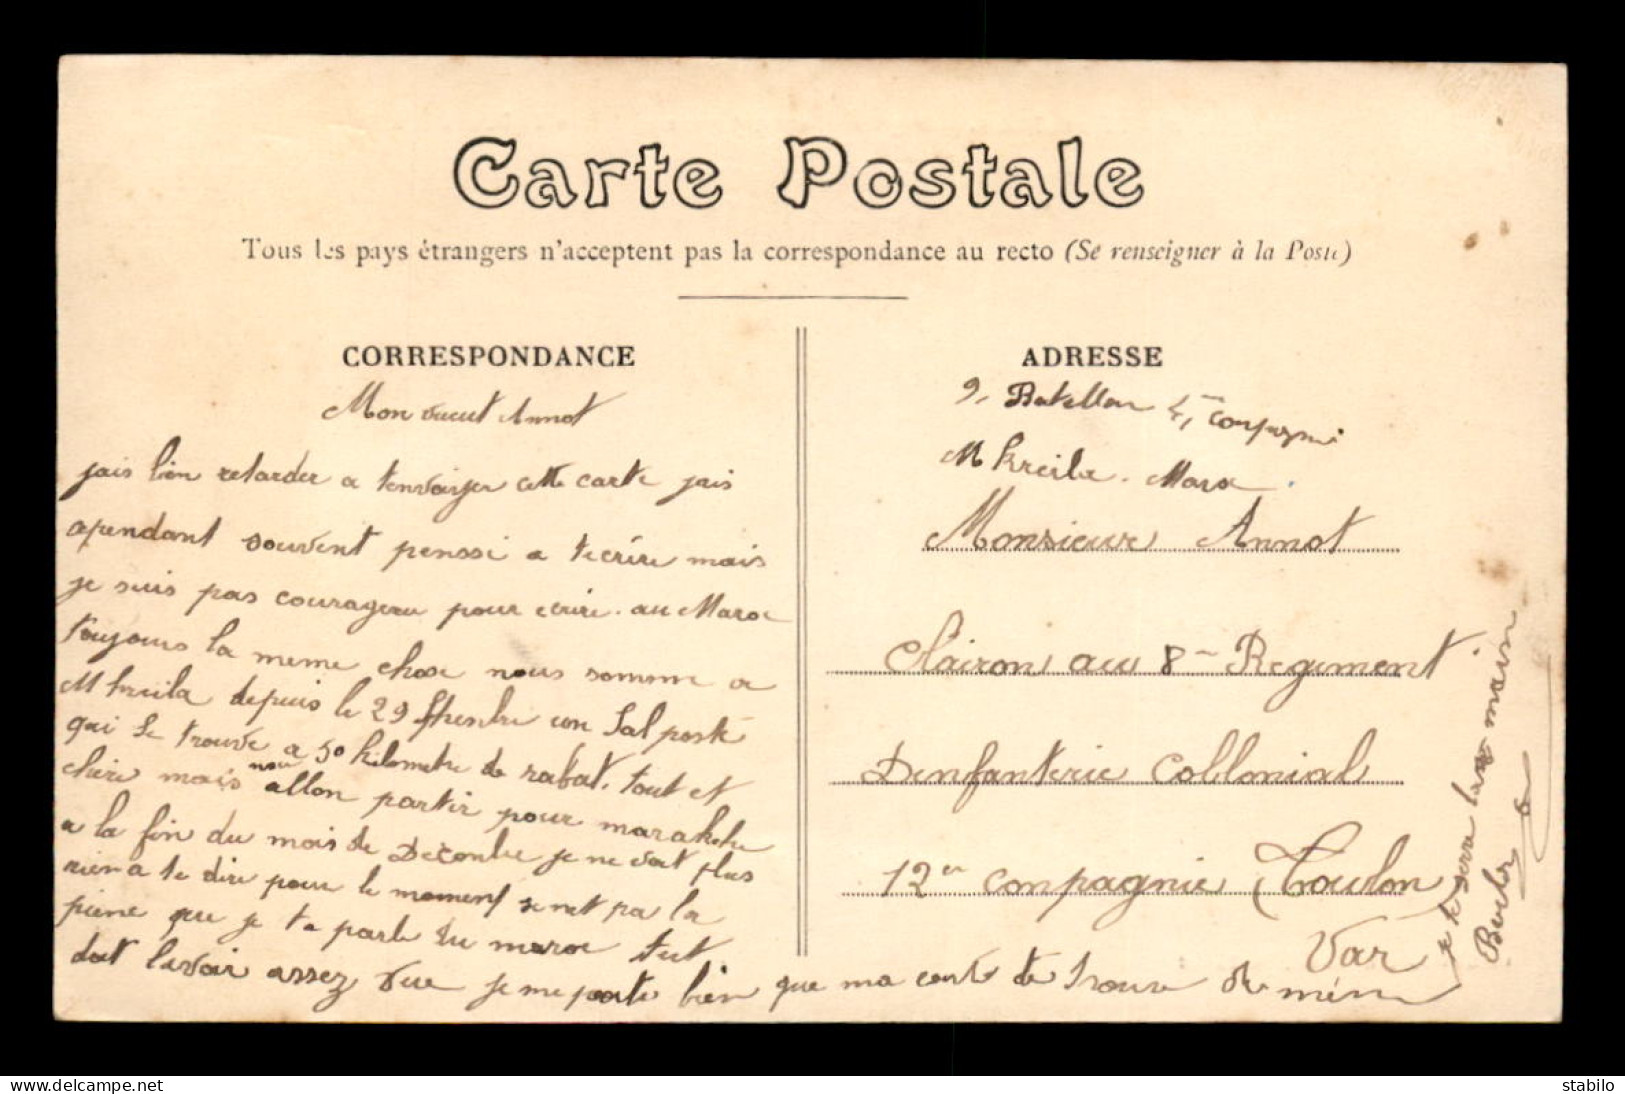 Carte Postale
Tous les pays étrangers n'acceptent pas la correspondance au recto (Se renseigner à la Poste)
CORRESPONDANCE
Mon vieut Annot
jais bien retarder a tenvoiyer cette carte jais
cependant souvent penssé a técrire mais
je suis pas courageux pour ecrire. au Maroc
toujours la meme chose nous somme a
M kreila depuis le 29 un sal poste
qui se trouve a 50 kilometre de rabat. tout et
chère mais nous allon partir pour marakche
a la fin du mois de Décenbre je ne voit plus
rien a te dire pour le moment se net pa la
peine que je te parle du maroc tut
doit lavoir assez vue je me porte bien que ma carte te trouve de mème
je te serre la main
ADRESSE
9, Batallon 4, compagnie
M kreila. Maroc.
Monsieur Annot
Clairon au 8 Regiment
Denfanterie Collonial
12 conpagnie Toulon
Var
delcampe.net
stabilo